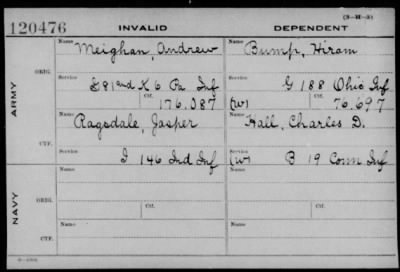 (3-H-3)
120476 INVALID DEPENDENT
Name Meighan, Andrew Name Bump, Hiram
ORIG. Service Service
G 188 Ohio Inf
Ctf. 176.087 (W) Ctf. 76.697
ARMY
Name Ragsdale, Jasper Name Hall, Charles D.
CTF.
Service I 146 Ind Inf Service (W) B 19 Conn Inf
Name Name
NAVY ORIG. Ctf. Ctf.
Name Name
CTF.